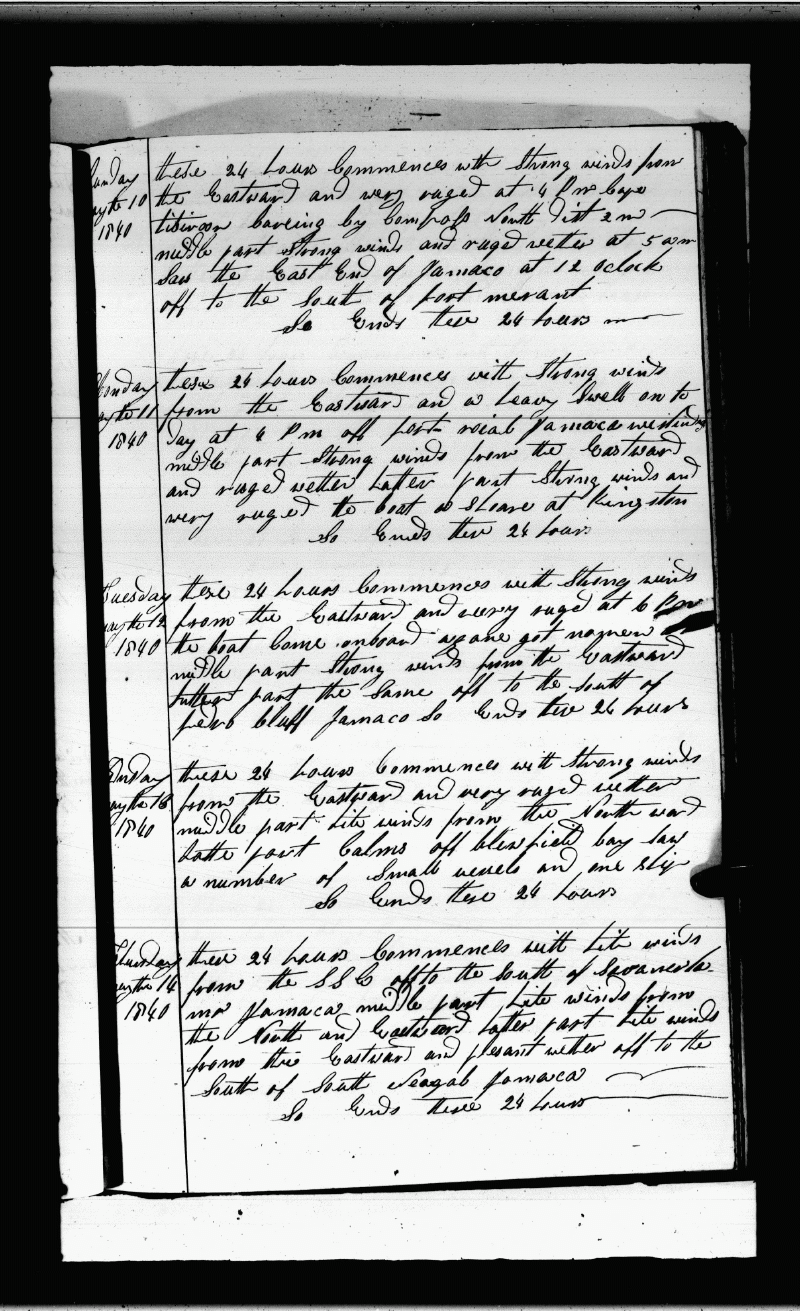 Sunday
may the 10
1840
these 24 hours Commences with Strong winds from
the Eastward and very ruged at 4 Pm Cape
tibiroon bareing by Compass North dist 2 m
middle part Strong winds and ruged wether at 5 am
Saw the East End of Jamaco at 12 oclock
off to the South of port merant
So Ends these 24 hours
Monday
may the 11
1840
these 24 hours Commences with Strong winds
from the Eastward and a heavy Swell on to
day at 4 Pm off port roial Jamaca
middle part Strong winds from the Eastward
and ruged wether Latter part Strong winds and
very ruged the boat a Shore at Kingston
So Ends these 24 hours
Tuesday
may the 12
1840
these 24 hours Commences with Strong winds
from the Eastward and very ruged at 6 Pm
the boat Come onboard agane got no men
middle part Strong winds from the Eastward
Latter part the Same off to the South of
pedro bluff Jamaco So Ends these 24 hours
may the 13
1840
these 24 hours Commences with Strong winds
from the Eastward and very ruged wether
middle part Lite winds from the North ward
Latte part Calms off blewfield bay Saw
a number of Small vessels and one Ship
So Ends these 24 hours
Thursday
may the 14
1840
these 24 hours Commences with Lite winds
from the SSE off to the South of Savanerla
mar Jamaca middle part Lite winds from
the North and Eastward Latter part Lite winds
from the Eastward and plesant wether off to the
South of South Neagab Jamaca
So Ends these 24 hours